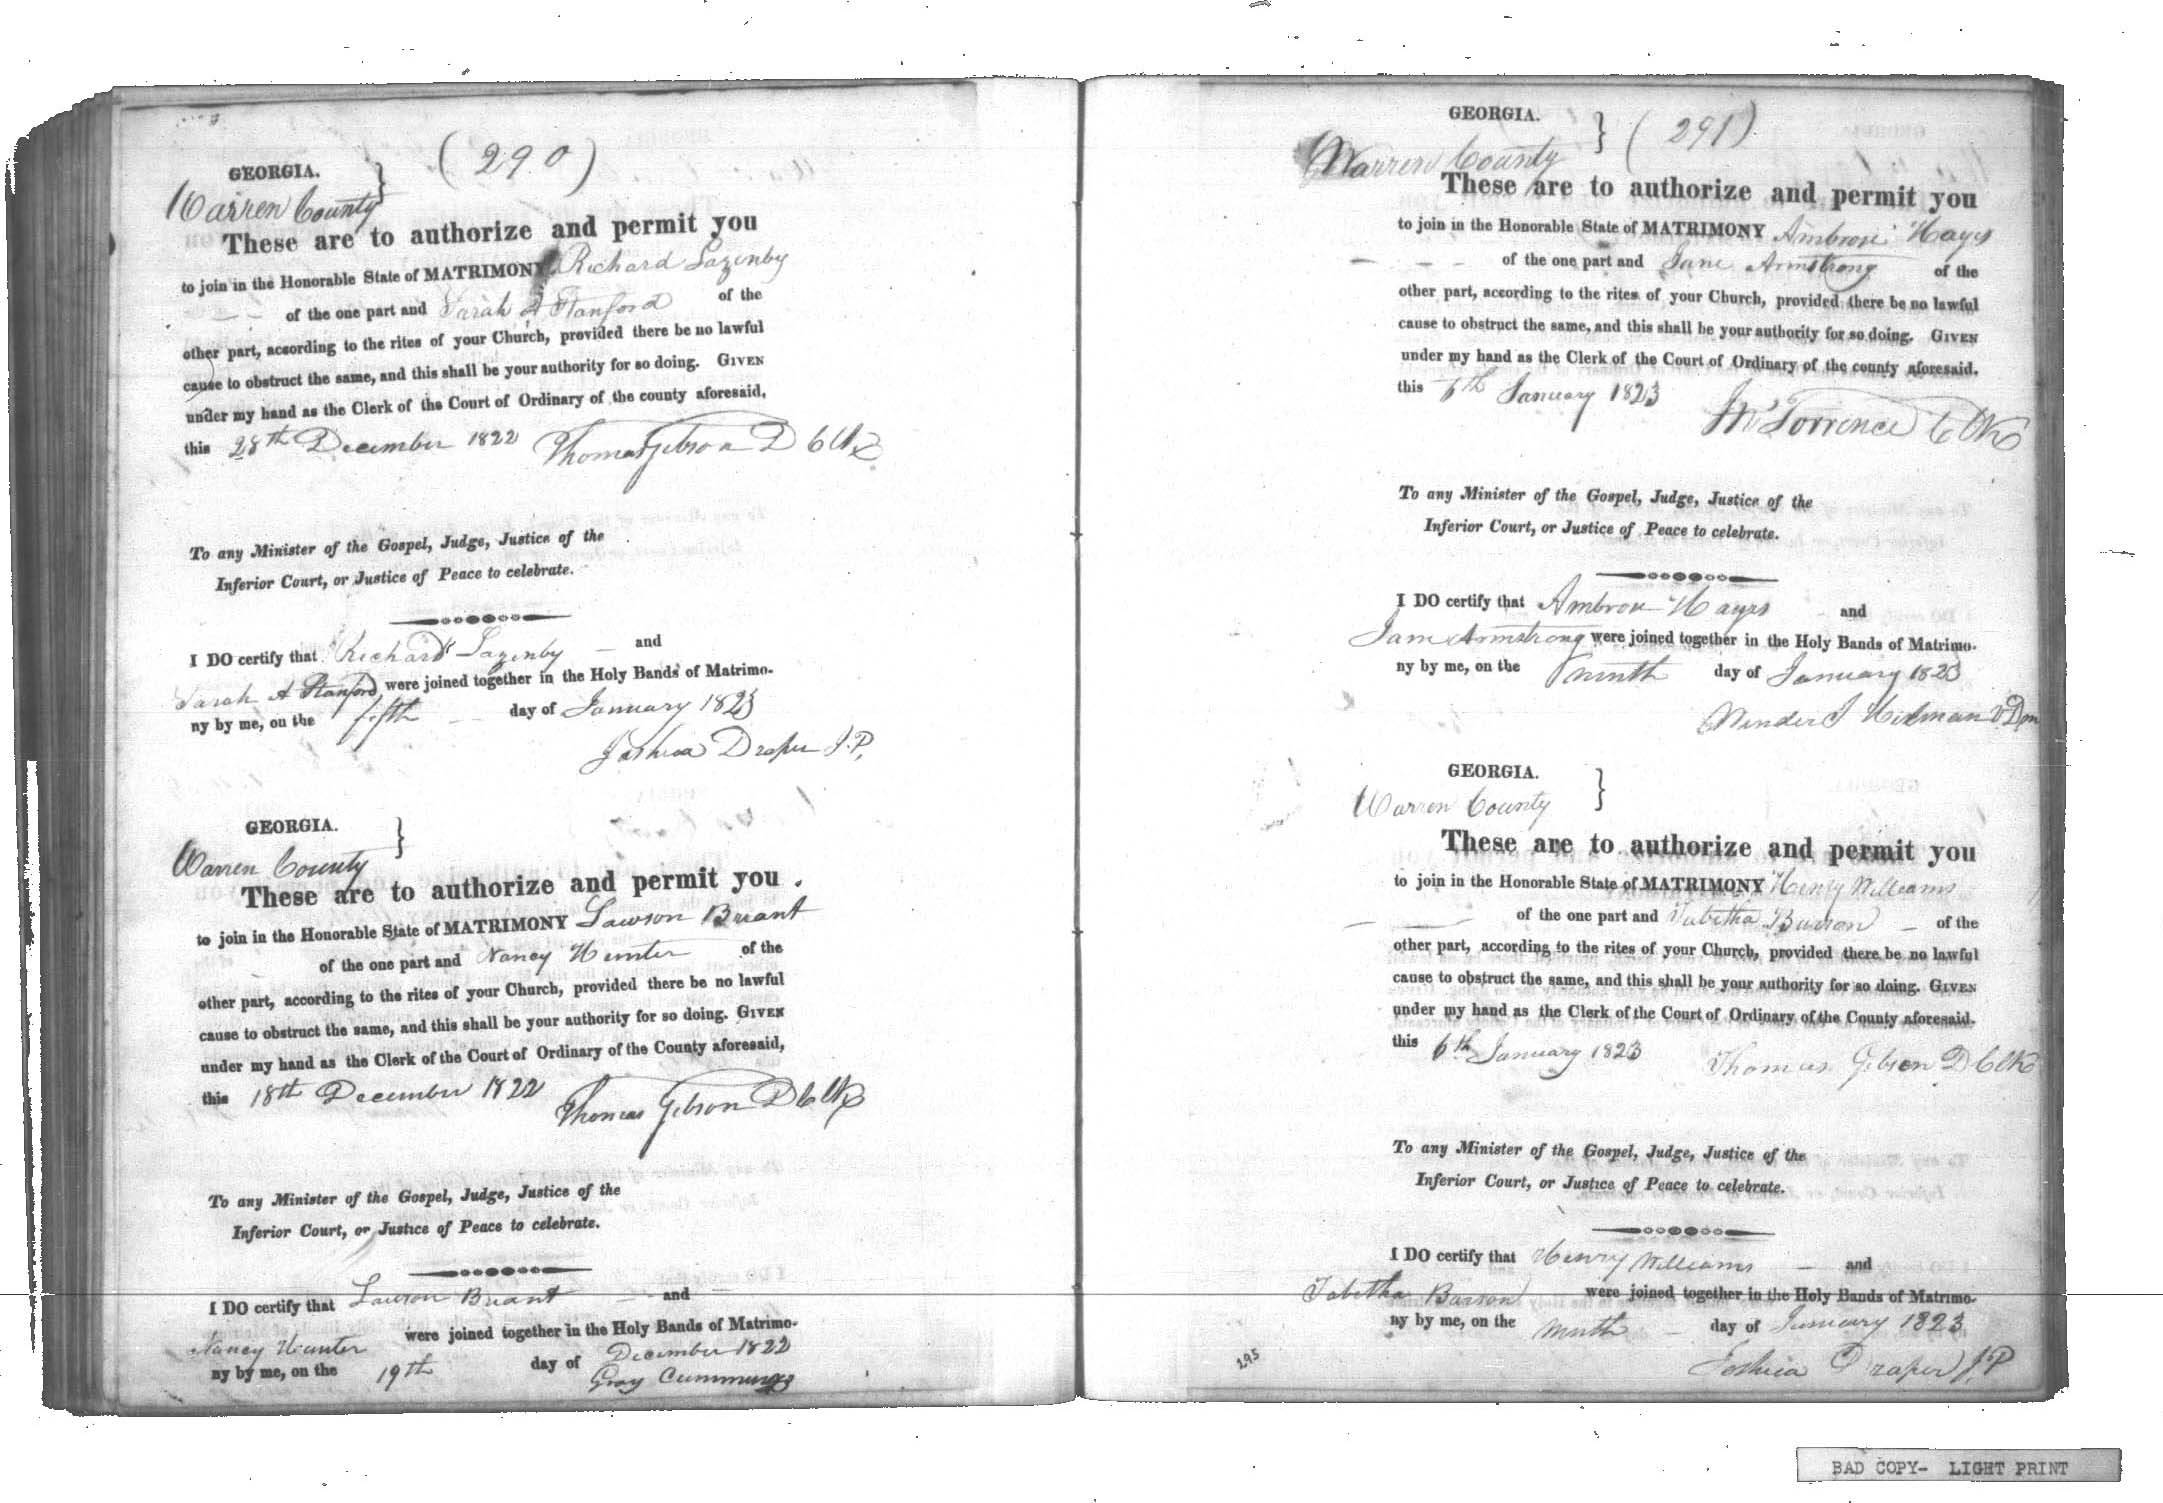 (290)
GEORGIA. }
Warren County
These are to authorize and permit you
to join in the Honorable State of MATRIMONY Richard Lazenby
of the one part and Sarah A Stanford of the
other part, according to the rites of your Church, provided there be no lawful
cause to obstruct the same, and this shall be your authority for so doing. GIVEN
under my hand as the Clerk of the Court of Ordinary of the county aforesaid,
this 28th December 1822 Thomas Gibson D Clk
To any Minister of the Gospel, Judge, Justice of the
Inferior Court, or Justice of Peace to celebrate.
I DO certify that Richard Lazenby and
Sarah A Stanford were joined together in the Holy Bands of Matrimo-
ny by me, on the fifth day of January 1823
Joshua Draper J.P.
GEORGIA. }
Warren County
These are to authorize and permit you
to join in the Honorable State of MATRIMONY Lawson Briant
of the one part and Nancy Hunter of the
other part, according to the rites of your Church, provided there be no lawful
cause to obstruct the same, and this shall be your authority for so doing. GIVEN
under my hand as the Clerk of the Court of Ordinary of the County aforesaid,
this 18th December 1822 Thomas Gibson D Clk
To any Minister of the Gospel, Judge, Justice of the
Inferior Court, or Justice of Peace to celebrate.
I DO certify that Lawson Briant and
Nancy Hunter were joined together in the Holy Bands of Matrimo-
ny by me, on the 19th day of December 1822
Gray Cummings
GEORGIA. } (291)
Warren County
These are to authorize and permit you
to join in the Honorable State of MATRIMONY Ambrose Hayes
of the one part and Jane Armstrong of the
other part, according to the rites of your Church, provided there be no lawful
cause to obstruct the same, and this shall be your authority for so doing. GIVEN
under my hand as the Clerk of the Court of Ordinary of the county aforesaid.
this 6th January 1823
Torrence Clk
To any Minister of the Gospel, Judge, Justice of the
Inferior Court, or Justice of Peace to celebrate.
I DO certify that Ambrose Hayes and
Jane Armstrong were joined together in the Holy Bands of Matrimo-
ny by me, on the ninth day of January 1823
Winder J Hilman
GEORGIA. }
Warren County
These are to authorize and permit you
to join in the Honorable State of MATRIMONY Henry Williams
of the one part and Tabitha Burson of the
other part, according to the rites of your Church, provided there be no lawful
cause to obstruct the same, and this shall be your authority for so doing. GIVEN
under my hand as the Clerk of the Court of Ordinary of the County aforesaid.
this 6th January 1823 Thomas Gibson D Clk
To any Minister of the Gospel, Judge, Justice of the
Inferior Court, or Justice of Peace to celebrate.
I DO certify that Henry Williams and
Tabitha Burson were joined together in the Holy Bands of Matrimo-
ny by me, on the ninth day of January 1823
Joshua Draper J.P
295
BAD COPY- LIGHT PRINT